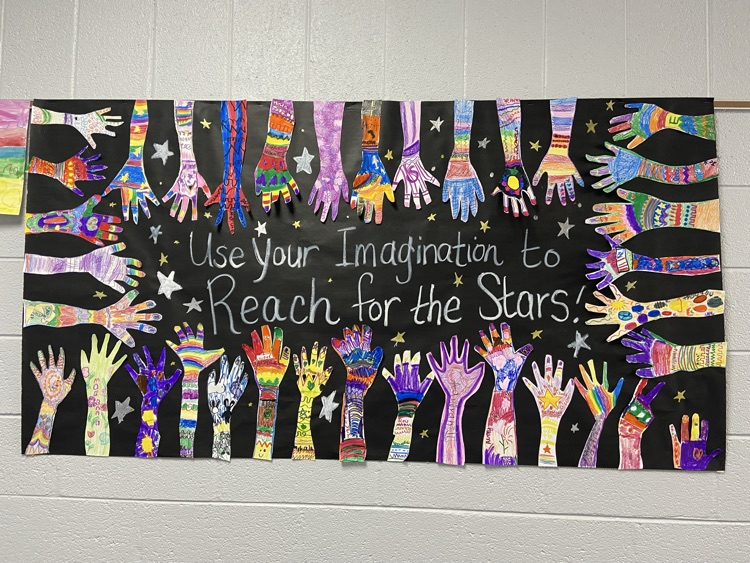 Use Your Imagination to
Reach for the Stars!